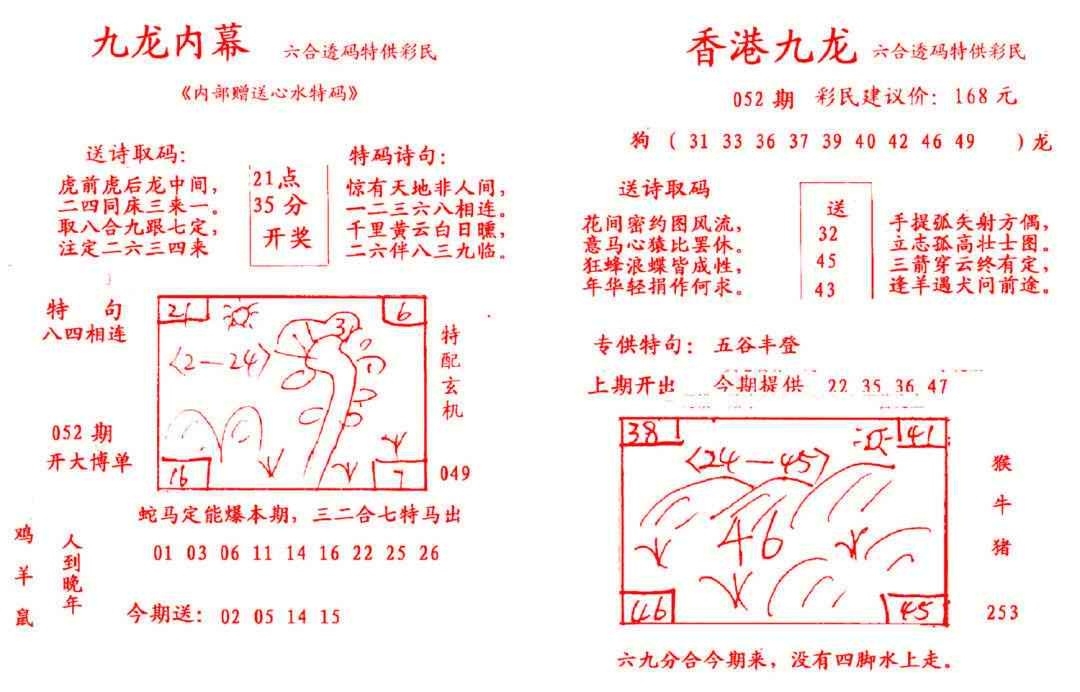 九龙内幕 六合透码特供彩民
《内部赠送心水特码》
送诗取码:
虎前虎后龙中间,
二四同床三来一。
取八合九跟七定,
注定二六三四来
21点
35分
开奖
特码诗句:
惊有天地非人间,
一二三六八相连。
千里黄云白日曛,
二六伴八三九临。
特 句
八四相连
052期
开大博单
21
6
3
(2—24)
16
7
特配玄机
049
蛇马定能爆本期, 三二合七特马出
01 03 06 11 14 16 22 25 26
鸡羊鼠
人到晚年
今期送: 02 05 14 15
香港九龙 六合透码特供彩民
052期 彩民建议价: 168元
狗 (31 33 36 37 39 40 42 46 49 )龙
送诗取码
花间密约图风流,
意马心猿比罢休。
狂蜂浪蝶皆成性,
年华轻捐作何求。
送
32
45
43
手提弧矢射方偶,
立志孤高壮士图。
三箭穿云终有定,
逢羊遇犬问前途。
专供特句: 五谷丰登
上期开出 今期提供 22 35 36 47
38
41
(24—45)
46
46
45
猴牛猪
253
六九分合今期来, 没有四脚水上走。